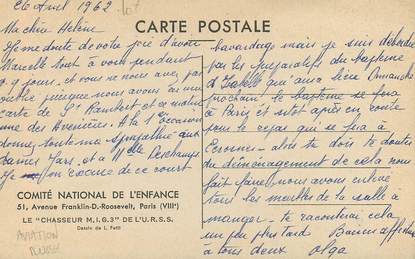 26 Avril 1962
CARTE POSTALE
Ma chère Hélène
Je me doute de votre joie d'avoir
Marcelle tout à vous pendant
9 jours. et vous ne nous avez pas
oublié puisque nous avons eu une
carte de St Rambert et ce matin
une des Avenières. A l'occasion
donnez toute ma sympathie aux
dames et à Melle Deschamps
Je excuse de ce court
bavardage mais je suis débordée
par les préparatifs du baptême
d'Isabelle qui aura lieu dimanche
prochain. le baptême se fera
à Paris et sitôt après en route
pour le repas qui se fera à
alors tu te doutes
du déménagement de cela nous
fait faire, nous avons enlevé
tous les meubles de la salle à
manger - te raconterai cela
un peu plus tard
à tous deux Olga
COMITÉ NATIONAL DE L'ENFANCE
51, Avenue Franklin-D.-Roosevelt, Paris (VIIIe)
LE "CHASSEUR M.I.G.3" DE L'U.R.S.S.
Dessin de L. Petit
AVIATION
RUSSE